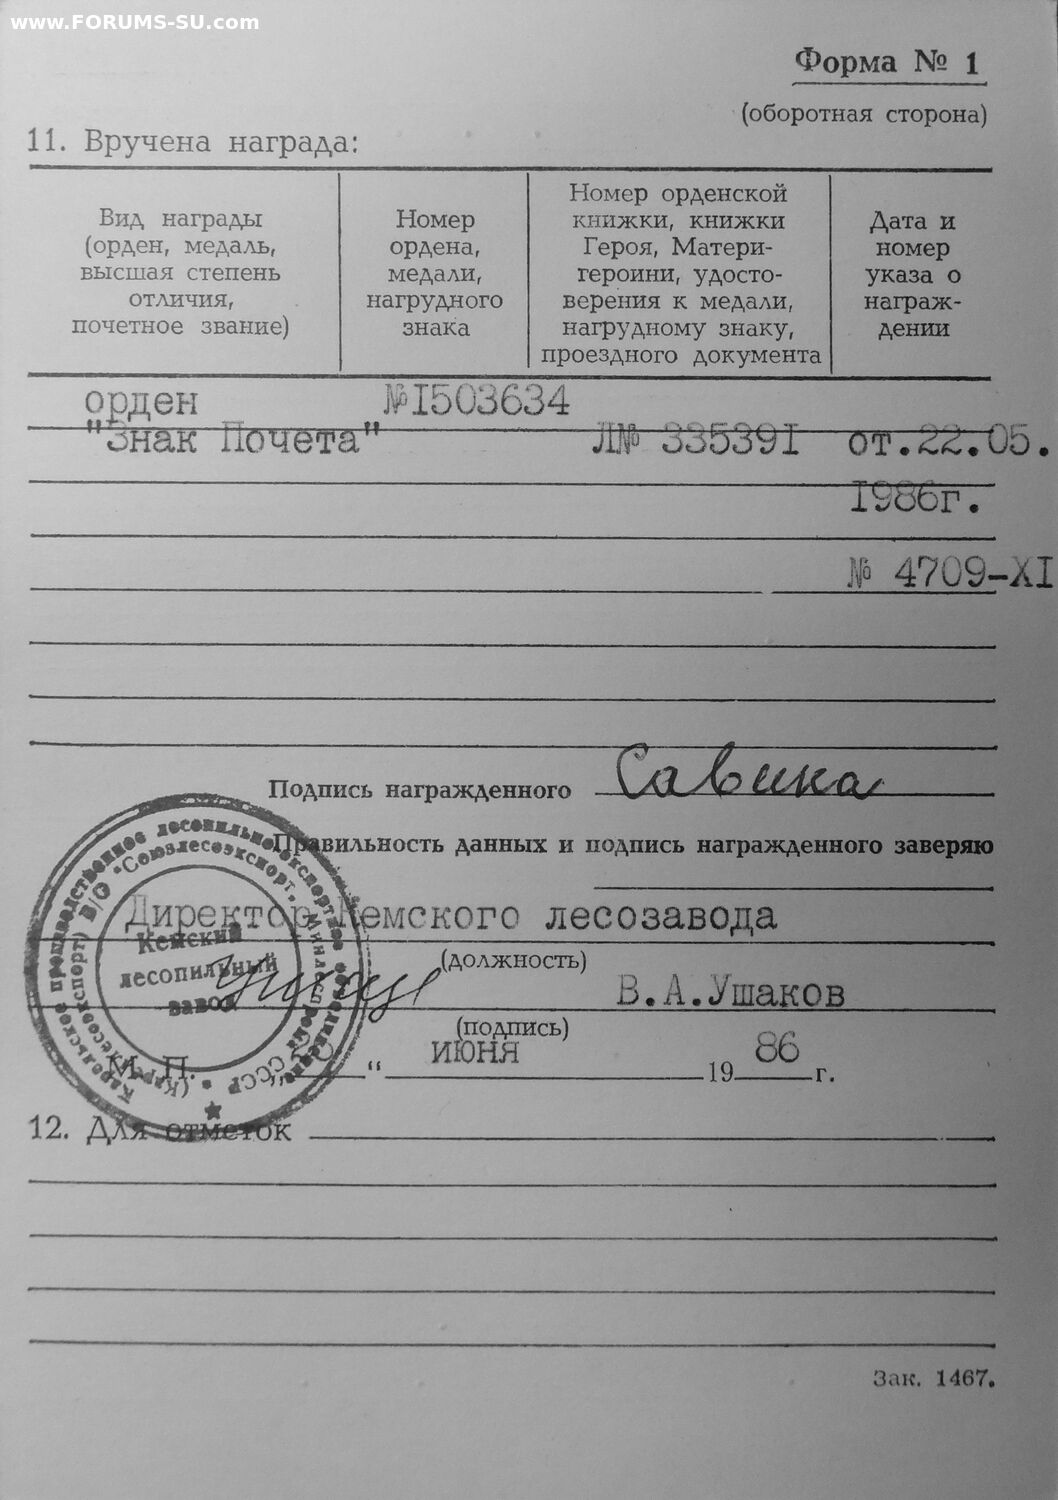 www.FORUMS-SU.com
Форма № 1
(оборотная сторона)
11. Вручена награда:
Вид награды
(орден, медаль,
высшая степень
отличия,
почетное звание)
Номер
ордена,
медали,
нагрудного
знака
Номер орденской
книжки, книжки
Героя, Матери-
героини, удосто-
верения к медали,
нагрудному знаку,
проездного документа
Дата и
номер
указа о
награж-
дении
орден №I503634
"Знак Почета" Л№ 335391 от.22.05.
1986г.
№ 4709-XI
Подпись награжденного Савика
Правильность данных и подпись награжденного заверяю
Директор Кемского лесозавода
(должность)
В.А.Ушаков
(подпись)
М. П. " июня 1986 г.
12. Для отметок
Карельское производственное лесопильно-экспортное объединение
(Кареллесоэкспорт) В/О "Союзлесоэкспорт" Минлеспрома СССР
Кемский
лесопильный
завод
Зак. 1467.